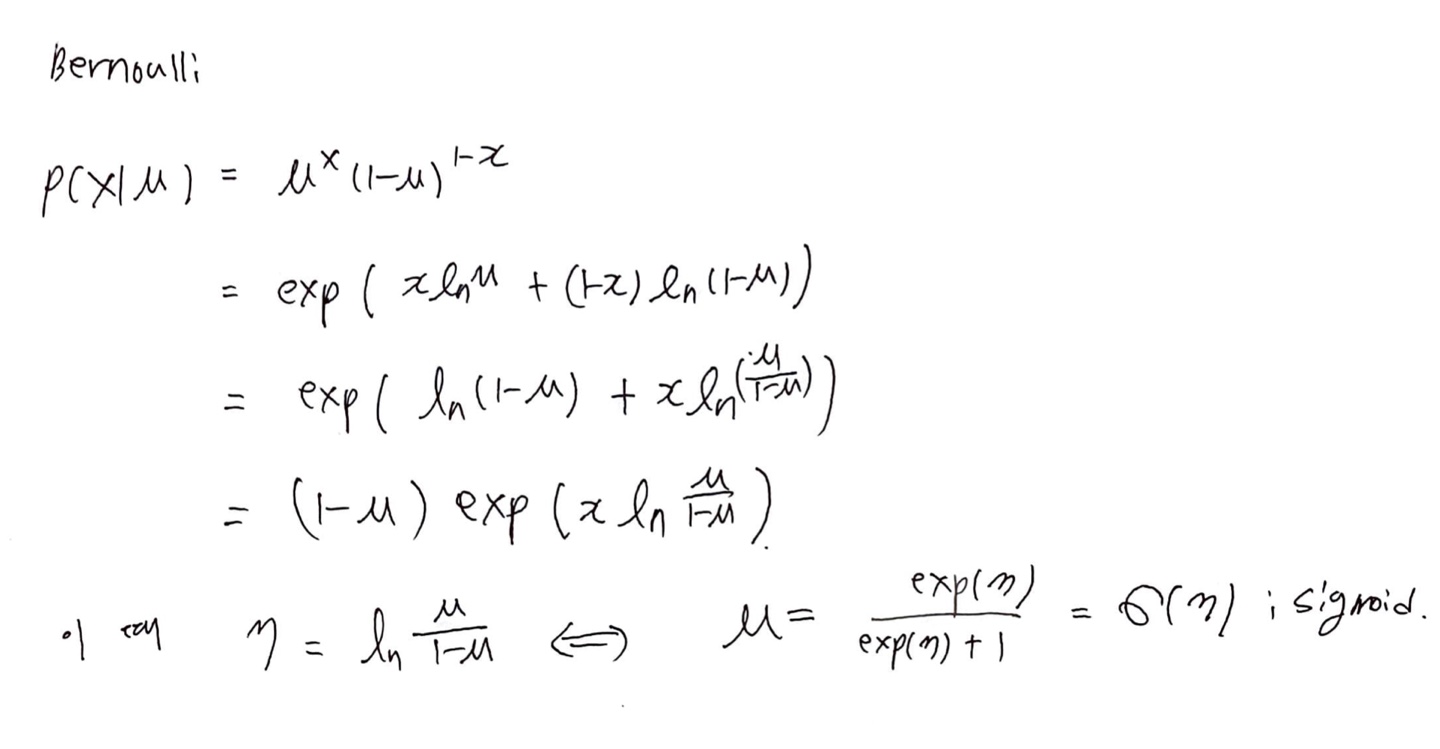 Bernoulli
p(x|μ) = μ^x (1-μ)^{1-x}
= exp( x ln μ + (1-x) ln (1-μ))
= exp( ln (1-μ) + x ln (μ/(1-μ)))
= (1-μ) exp (x ln μ/(1-μ))
이 때 η = ln μ/(1-μ) ⟺ μ = exp(η)/(exp(η) + 1) = σ(η) ; sigmoid.